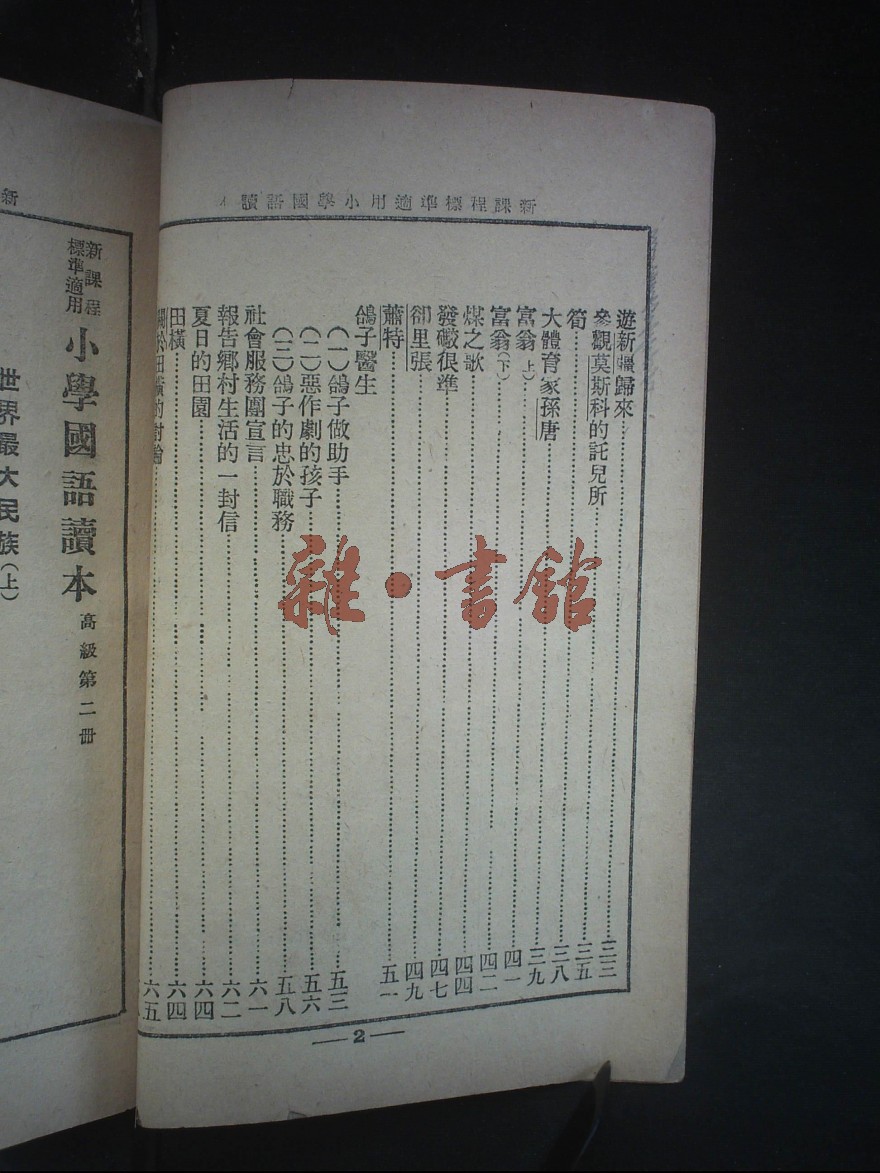 新課程標準適用小學國語讀本
遊新疆歸來 三三
參觀莫斯科的託兒所 三五
筍 三八
大體育家孫唐 三九
富翁(上) 四一
富翁(下) 四二
煤之歌 四四
發礮很準 四七
卻里張 四九
蕭特 五一
鴿子醫生
(一)鴿子做助手 五三
(二)惡作劇的孩子 五六
(三)鴿子的忠於職務 五八
社會服務團宣言 六一
報告鄉村生活的一封信 六二
夏日的田園 六四
田橫 六四
關於田橫的討論 六五
2
新
新課程標準適用 小學國語讀本 高級第二冊
世界最大民族(上)
雜·書館